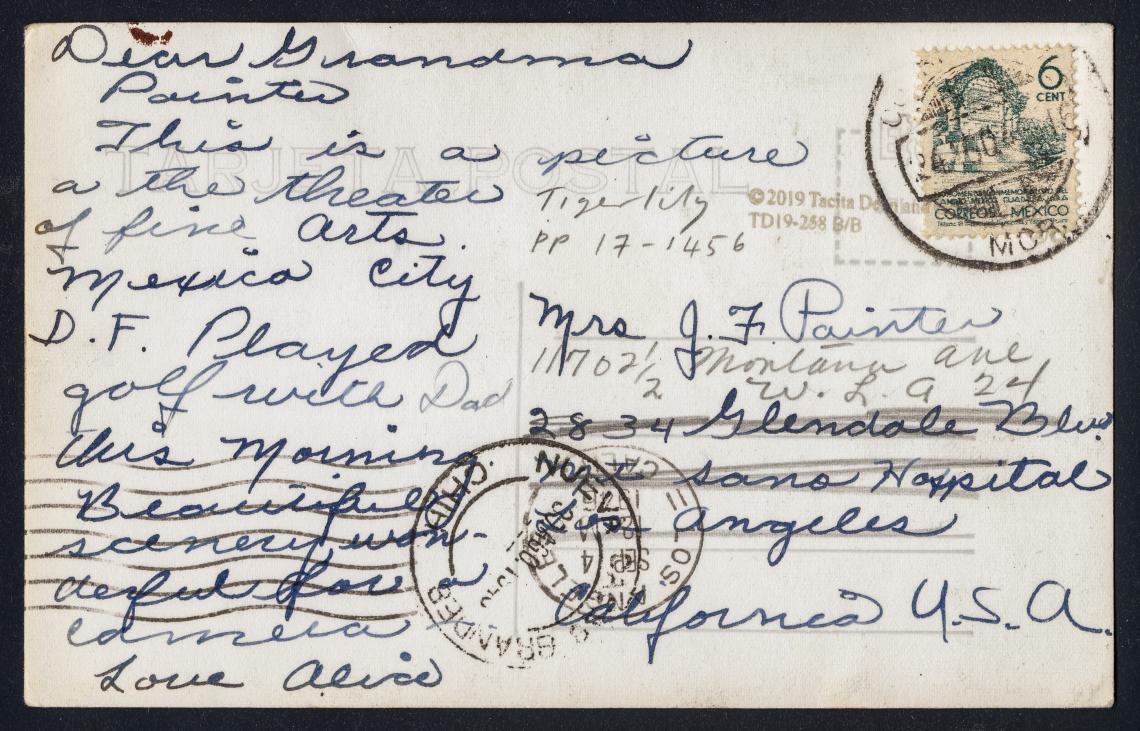 Dear Grandma
Painter
This is a picture
a the theater
of fine Arts.
Mexico City
D.F. Played
golf with Dad
this Morning
Beautiful
scenery won-
derful for a
camera -
Love Alice
TARJETA POSTAL
Tigerlily
PP 17-1456
© 2019 Tacita De
TD19-258 B/B
6
CENT
CORREOS MEXICO
MOR.
Mrs J. F. Painter
11702 1/2 Montana Ave
W. L. A 24
2834 Glendale Blvd
Mt Sano Hospital
Los Angeles
California U.S.A.
LOS ANGELES
CAL
SEP 4
BRANDES